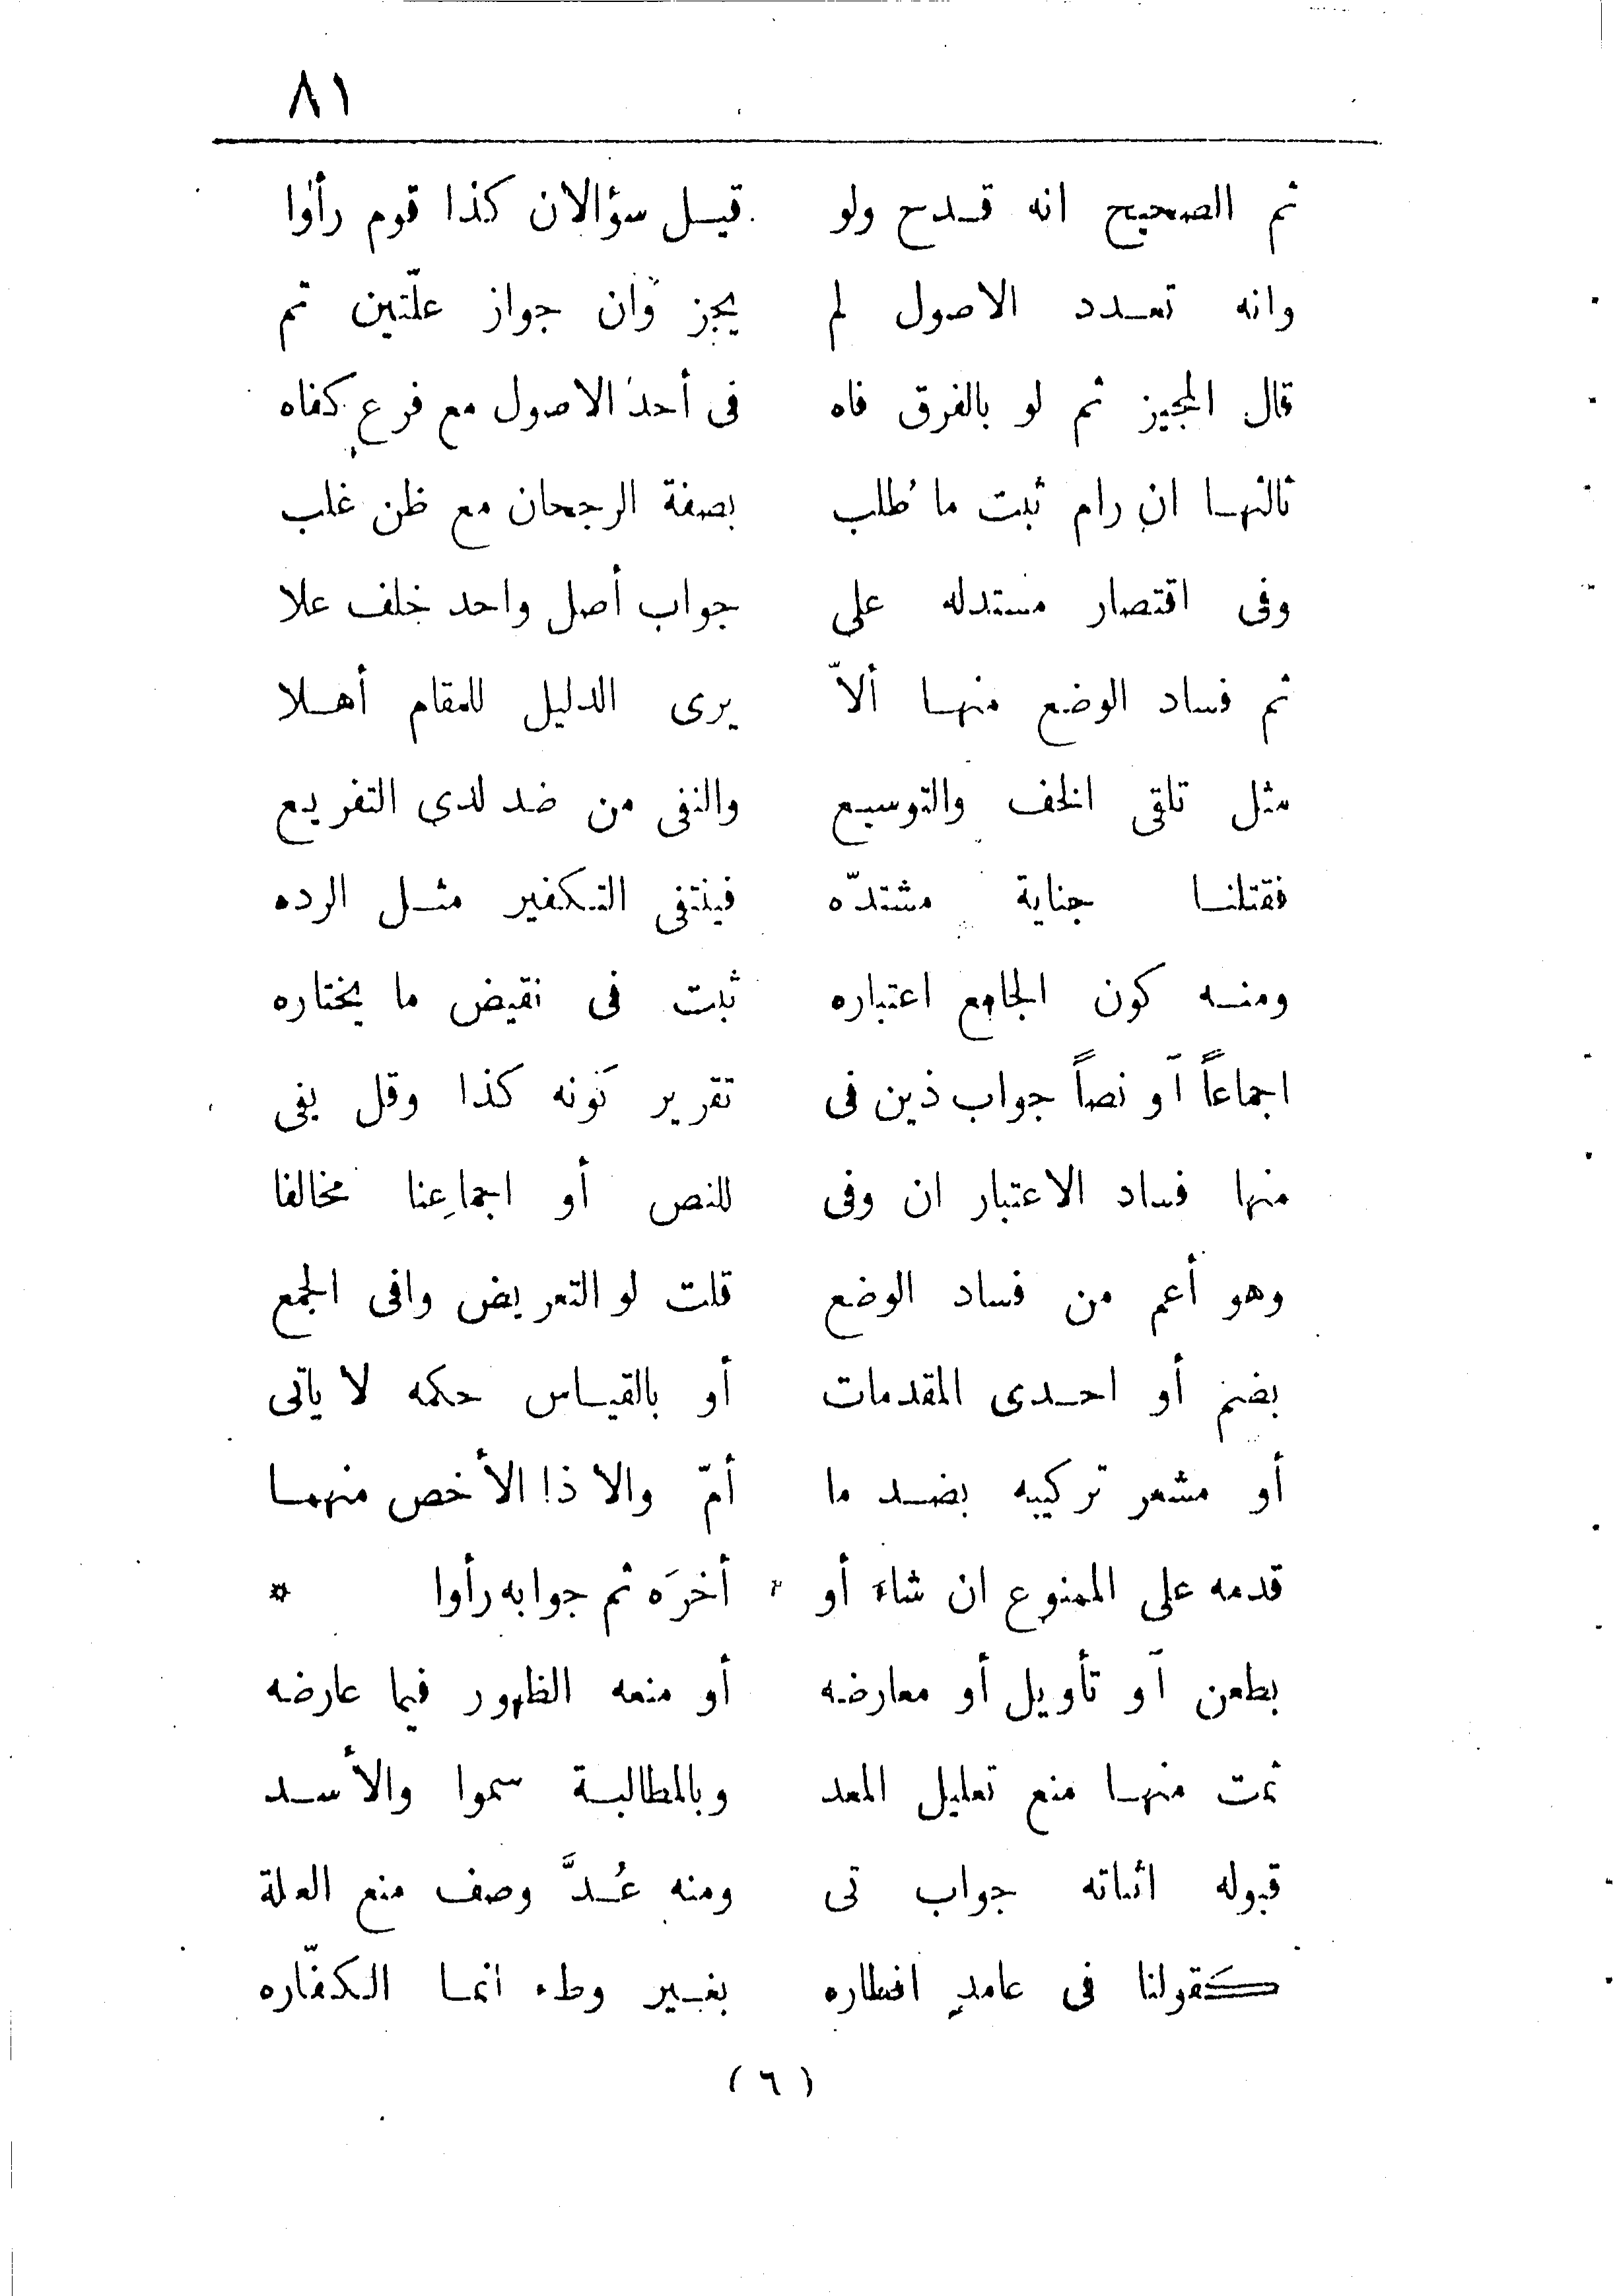 ٨١
ثم الصحيح انه قدح ولو قيل سؤالان كذا قوم رأوا
وانه تعدد الاصول لم يجز وان جواز علّتين تم
قال المجيز ثم لو بالفرق فاه فى أحد الاصول مع فرع كفاه
ثالثها ان رام ثبت ما طلب بصفة الرجحان مع ظن غلب
وفى اقتصار مستدله على جواب أصل واحد خلف علا
ثم فساد الوضع منها ألاّ يرى الدليل للمقام أهلا
مثل تلقى الخف والتوسيع والنفى من ضد لدى التفريع
فقتلنا جناية مشتدّه فينتفى التكفير مثل الرده
ومنه كون الجامع اعتباره ثبت فى نقيض ما يختاره
اجماعاً آو نصاً جواب ذين فى تقرير كونه كذا وقل يفى
منها فساد الاعتبار ان وفى للنص أو اجماعِنا مخالفا
وهو أعم من فساد الوضع قلت لو التعريض وافى الجمع
بضم أو احدى المقدمات أو بالقياس حكمه لا ياتى
أو مشعر تركيبه بضد ما أمّ والا ذا الأخص منهما
قدمه على الممنوع ان شاء أو أخرَه ثم جوابه رأوا *
بطعن آو تأويل أو معارضه أو منعه الظهور فيما عارضه
ثمت منها منع تعليل المعد وبالمطالبة سموا والأسد
قبوله اثباته جواب تى ومنه عُدَّ وصف منع العلة
كَقولنا فى عامدٍ افطاره بغير وطء انما الكفّاره
(٦)